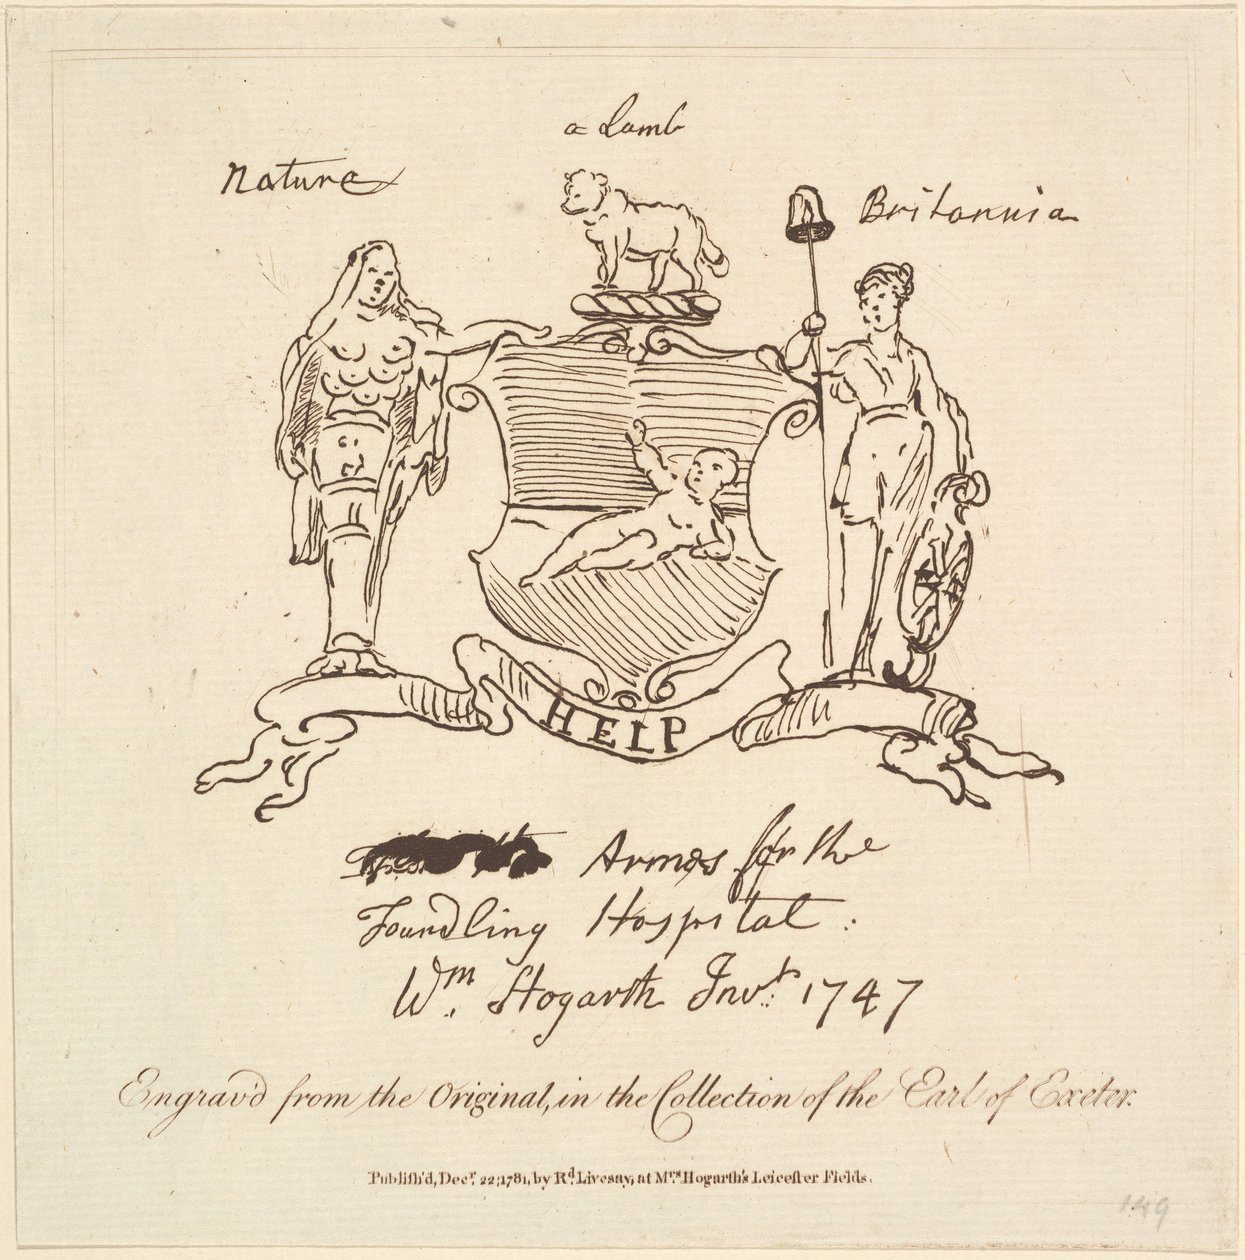 a Lamb
Nature
Britannia
HELP
Armes for the
Foundling Hospital :
Wm. Hogarth Invt: 1747
Engrav'd from the Original, in the Collection of the Earl of Exeter.
Publish'd, Decr. 22; 1781, by Rd. Livesay, at Mrs. Hogarth's Leicester Fields.
149